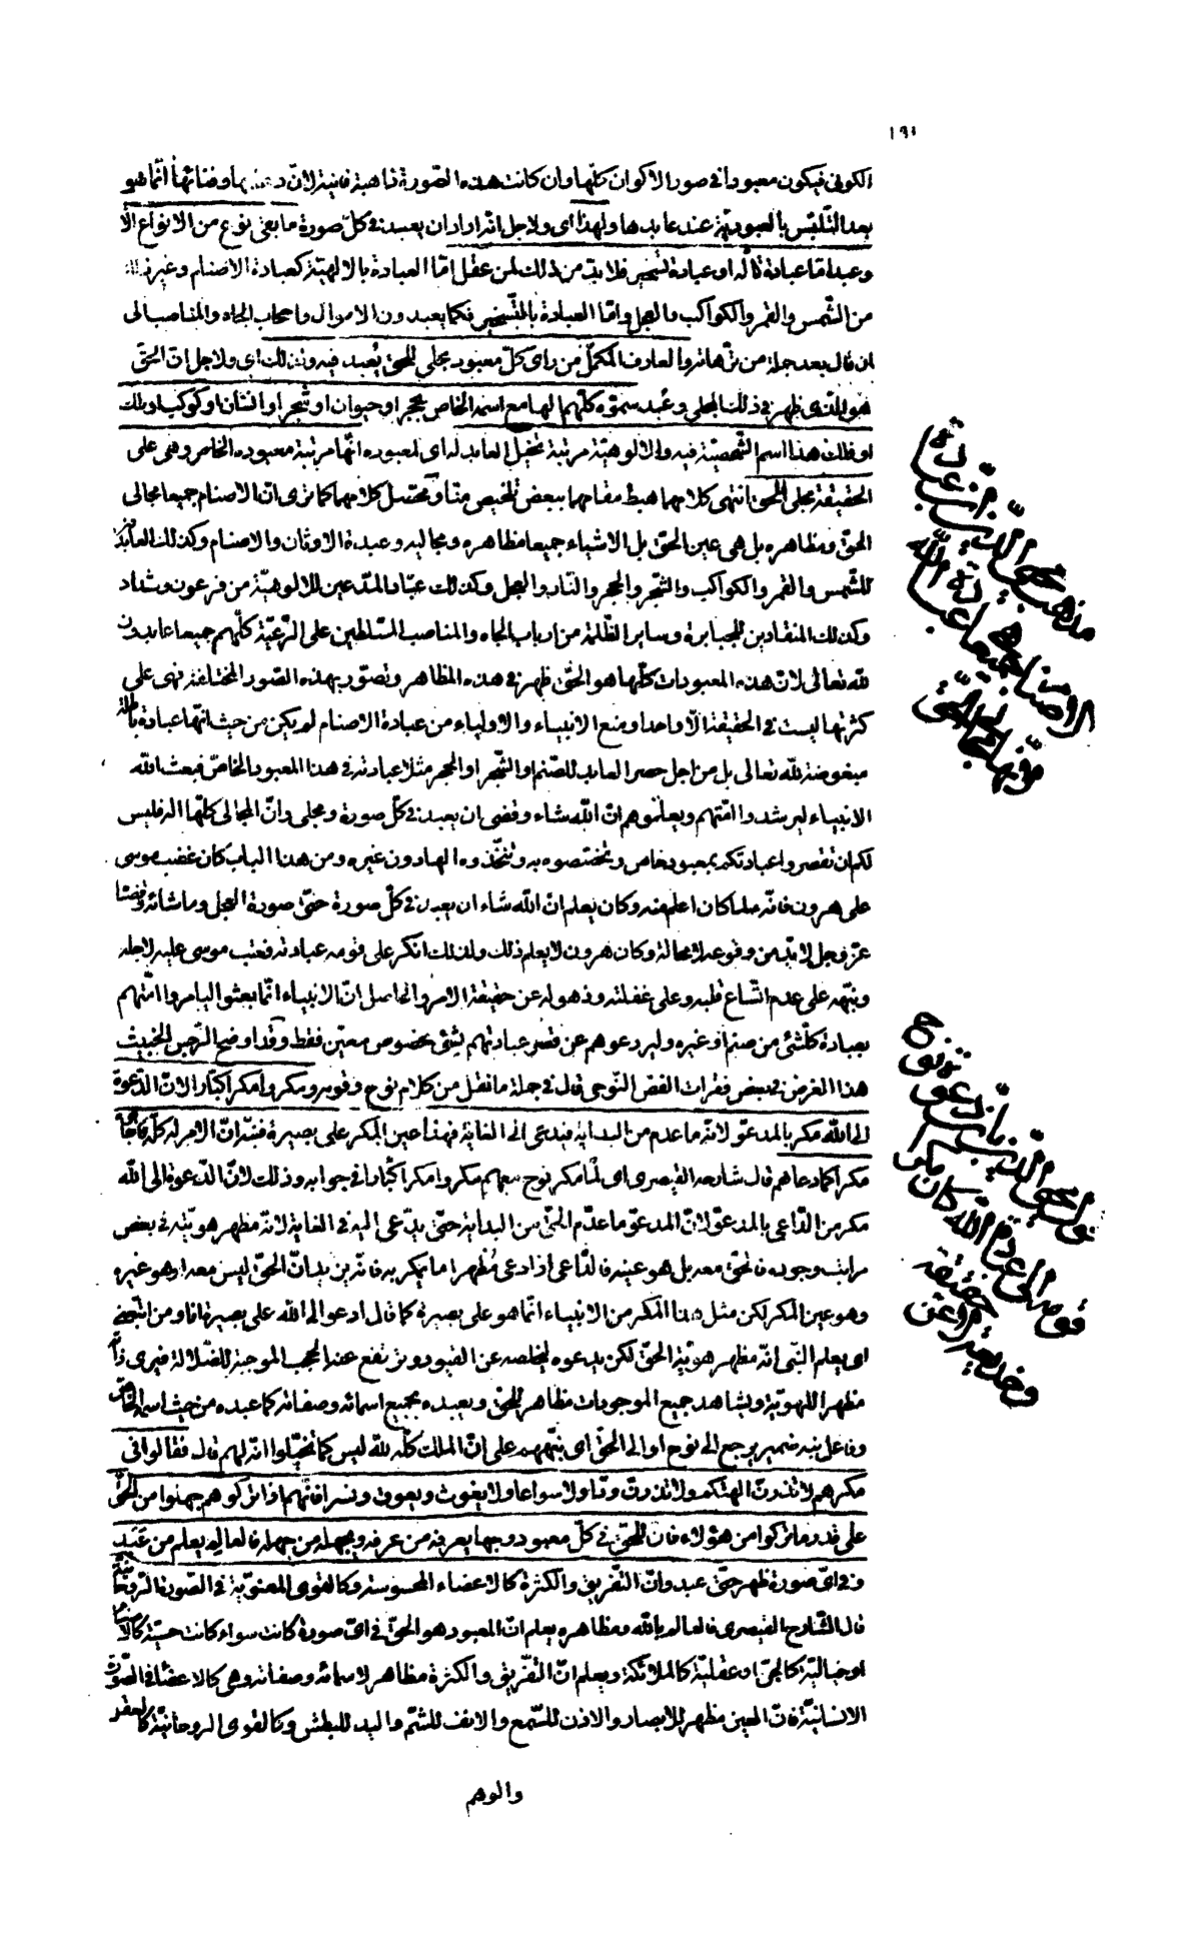 ١٩١
الكونى فيكون معبودا فى صور الاكوان كلّها وان كانت هذه الصّورة ذاهبة فانية لانّ ذهابها وفنائها انّما هو
بعد التّلبّس بالعبوديّة عند عابدها ولهذا اى ولاجل انّه اراد ان يعبد فى كلّ صورة ما بقى نوع من الانواع الّا
وعبد امّا عبادة تألّه او عبادة تسخير فلا بدّ من ذلك لمن عقل امّا العبادة بالالهيّة كعبادة الاصنام وغيرها
من الشّمس والقمر والكواكب والعجل وامّا العبادة بالتّسخير فكما يعبدون الاموال واصحاب الجاه والمناصب الى
ان قال بعد جملة من ترّهاته والعارف المكمّل من راى كلّ معبود مجلى للحقّ يُعبد فيه ولذلك اى ولاجل انّ الحقّ
هو الّذى ظهر فى ذلك المجلى وعُبد سمّوه كلّهم الها مع اسمه الخاص بحجر او حيوان او شجر او انسان او كوكب او ملك
او فلك هذا اسم الشّخصيّة فيه والالوهيّة مرتبة تخيّل العابد له اى لمعبوده انّها مرتبة معبوده الخاص وهى على
الحقيقة مجلى الحقّ انتهى كلامهما هبط مقامهما ببعض تلخيص منّا ومحصّل كلامهما كما ترى انّ الاصنام جميعا مجالى
الحقّ ومظاهره بل هى عين الحقّ بل الاشياء جميعا مظاهره ومجاليه وعبدة الاوثان والاصنام وكذلك العابدين
للشّمس والقمر والكواكب والشّجر والحجر والنّار والعجل وكذلك عبّاد المدّعين للالوهيّة من فرعون وشداد
وكذلك المنقادين للجبابرة وساير الظّلمة من ارباب الجاه والمناصب المتسلطين على الرّعيّة كلّهم جميعا عابدون
للّه تعالى لانّ هذه المعبودات كلّها هو الحقّ ظهر فى هذه المظاهر وتصوّر بهذه الصّور المختلفة فهى على
كثرتها ليست فى الحقيقة الّا واحدا ومنع الانبياء والاولياء من عبادة الاصنام لم يكن من حيث انّها عبادة باطلة
مبغوضة للّه تعالى بل من اجل حصر العابد للصّنم او الشّجر او الحجر مثلا عبادته فى هذا المعبود الخاصّ فبعث اللّه
الانبياء ليرشدوا امّتهم ويعلّموهم انّ اللّه شاء وقضى ان يعبد فى كلّ صورة ومجلى وانّ المجالى كلّها اله فليس
لكم ان تقصروا عبادتكم بمعبود خاص وتختصّوه به وتتّخذوه الها دون غيره ومن هذا الباب كان غضب موسى
على هرون فانّه لما كان اعلم منه وكان يعلم انّ اللّه شاء ان يعبد فى كلّ صورة حتّى صورة العجل وما شائه وقضا
عزّ وجل لا بدّ من وقوعه لا محالة وكان هرون لا يعلم ذلك ولذلك انكر على قومه عبادته فعتب موسى عليه لاجله
ونبّهه على عدم اتّساع قلبه وعلى غفلته وذهوله عن حقيقة الامر والحاصل انّ الانبياء انّما بعثوا ليامروا امّتهم
بعبادة كلّ شئ من صنم او غيره وليردعوهم عن قصر عبادتهم بشئ بخصوص معيّن فقط وقد اوضح الرّجس الخبيث
هذا الغرض فى بعض فقرات الفصّ النّوحى قال فى جملة ما نقل من كلام نوح وقومه ومكروا مكرا كبّارا لانّ الدّعوة
الى اللّه مكر بالمدعوّ لانّه ما عدم من البداية فيدعى الى الغاية فهذا عين المكر على بصيرة فنبّه انّ الامر له كلّه فاجابوه
مكرا كما دعاهم قال شارحه القيصرى اى لمّا مكر نوح معهم مكروا مكرا كبّارا فى جوابه وذلك لانّ الدّعوة الى اللّه
مكر من الدّاعى بالمدعوّ لانّ المدعوّ ما عدّم الحقّ من البداية حتّى يدّعى اليه فى الغاية لانّه مظهر هويّته فى بعض
مراتب وجوده فالحقّ معه بل هو عينه فالدّاعى اذا دعى مُظهرا ما يمكر به فانّه يريد انّ الحقّ ليس معه او هو غيره
وهو عين المكر لكن مثل هذا المكر من الانبياء انّما هو على بصيرة كما قال ادعو الى اللّه على بصيرة انا ومن اتّبعنى
اى يعلم النّبى انّه مظهر هويّة الحقّ لكن يدعوه ليخلصه عن القيود وترتفع عنه الحجب الموجبة للضّلالة فيرى
مظهر الهويّة ويشاهد جميع الموجودات مظاهر للحقّ ويعبده بجميع اسمائه وصفاته كما عبده من حيث اسمه الخاصّ
وفاعل نبّه ضمير يرجع الى نوح او الى الحقّ اى نبّههم على انّ الملك كلّه للّه ليس كما تخيّلوا انّه لهم قال فقالوا فى
مكرهم لا تذرنّ الهتكم ولا تذرنّ ودّا ولا سواعا ولا يغوث ويعوق ونسرا فانّهم اذا تركوهم جهلوا من الحقّ
على قدر ما تركوا من هؤلاء فان للحقّ فى كلّ معبود وجها يعرفه من عرفه ويجهله من جهله فالعالم يعلم من عُبد
وفى اىّ صورة ظهر حتّى عبد وانّ التّفريق والكثرة كالاعضاء المحسوسة وكالقوى المعنويّة فى الصّورة الرّوحانيّة
قال الشّارح القيصرى فالعالم باللّه ومظاهره يعلم انّ المعبود هو الحقّ فى اىّ صورة كانت سواء كانت حسيّة كالاصنام
او خياليّة كالجنّ او عقليّة كالملائكة ويعلم انّ التّفريق والكثرة مظاهر لاسمائه وصفاته وهى كالاعضاء فى الصّورة
الانسانيّة فانّ العين مظهر للابصار والاذن للسّمع والانف للشّمّ واليد للبطش وكالقوى الروحانيّة كالعقل
والوهم
مذهب محيى الدين انّ عبدة
الاصنام حقيقة عبدة اللّه
قول محيى الدين بانّ دعوة نوح
قومه الى عبادة اللّه كان مكرا